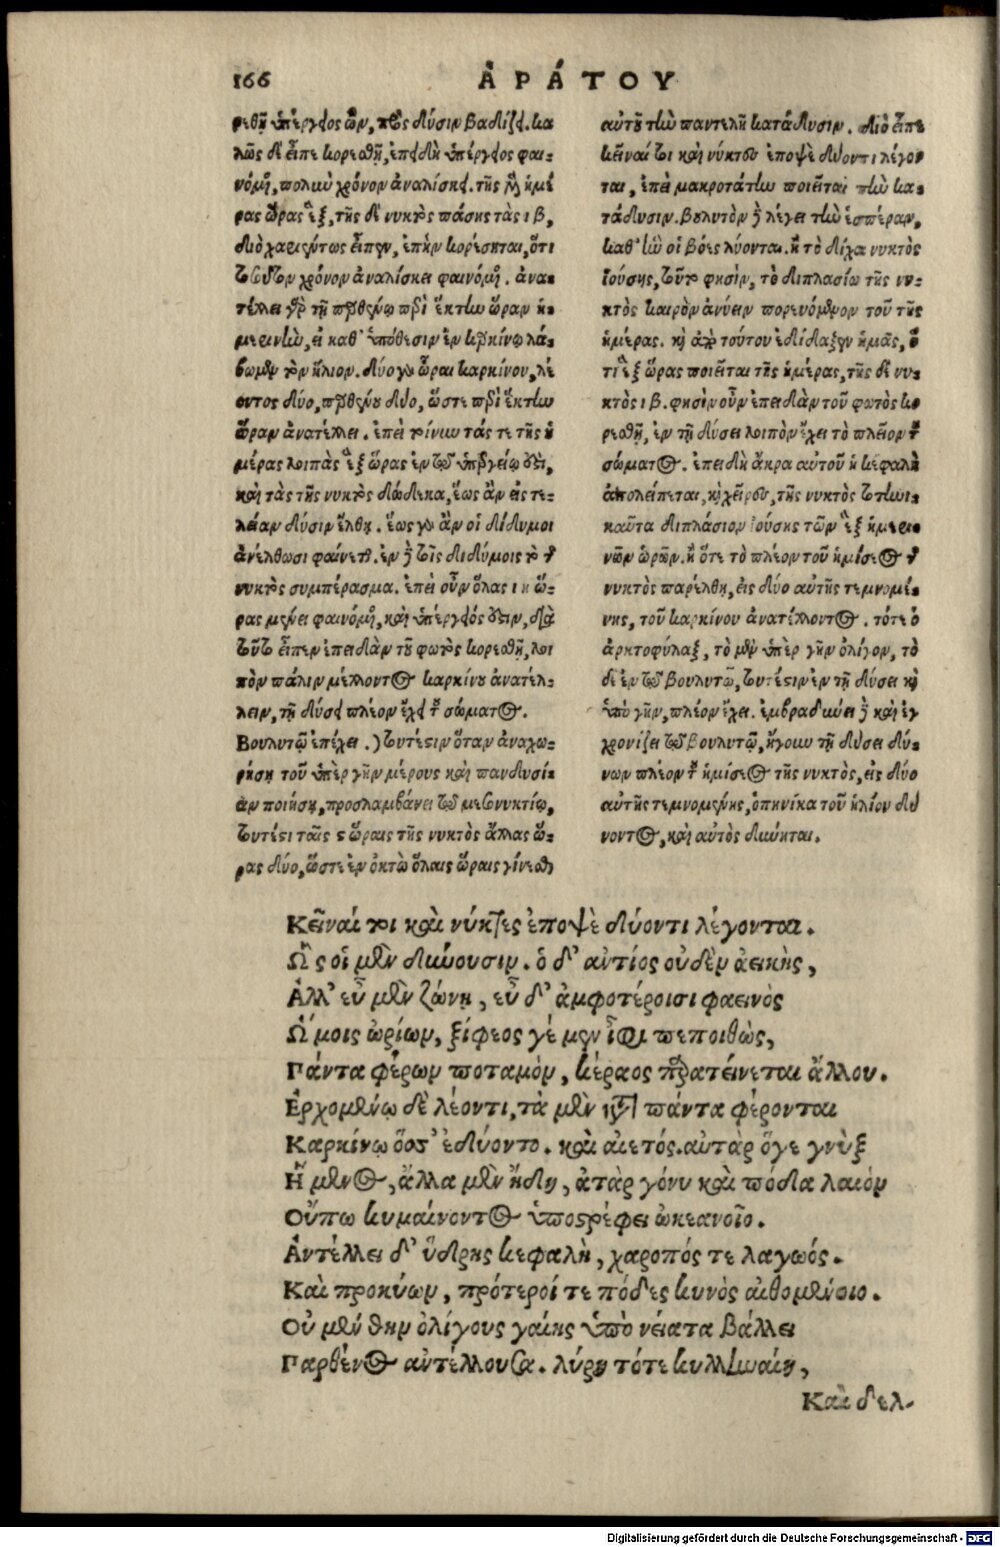 166
ἈΡΆΤΟΥ
ρεθῇ ὑπέργειος ὢν, πρὸς δύσιν βαδίζει. κα
λῶς δὲ εἶπε κορεσθῇ, ἐπειδὴ ὑπέργειος φαι-
νόμενος, πολὺν χρόνον ἀναλίσκει. τῆς μὲν ἡμέ-
ρας ὥρας ἓξ, τῆς δὲ νυκτὸς πάσης τὰς ιβ,
διὸ χαριέντως εἶπεν, ἐπὴν κορέσηται, ὅτι
τοσοῦτον χρόνον ἀναλίσκει φαινόμενος. ἀνα-
τέλλει γὰρ τῇ παρθένῳ περὶ ἕκτην ὥραν ἡ-
μερινὴν, εἰ καθ' ὑπόθεσιν ἐν καρκίνῳ λά-
βωμεν τὸν ἥλιον. δύο γοῦν ὧραι καρκίνου, λέ
οντος δύο, παρθένου δύο, ὥστε περὶ ἕκτην
ὥραν ἀνατέλλει. ἐπεὶ τοίνυν τάς τε τῆς ἡ
μέρας λοιπὰς ἓξ ὥρας ἐν τῷ ὑπεργείῳ ἐστὶ,
καὶ τὰς τῆς νυκτὸς δώδεκα, ἕως ἂν εἰς τε-
λείαν δύσιν ἔλθῃ. ἕως γοῦν ἂν οἱ δίδυμοι
ἀνέλθωσι φαίνεται. ἐν δὲ τοῖς διδύμοις τὸ τῆς
νυκτὸς συμπέρασμα. ἐπεὶ οὖν ὅλας ιη ὥ-
ρας μένει φαινόμενος, καὶ ὑπέργειός ἐστιν, διὰ
τοῦτο εἶπεν ἐπειδὰν τοῦ φωτὸς κορεσθῇ, λοι
πὸν πάλιν μέλλοντος καρκίνου ἀνατέλ-
λειν, τῇ δύσει πλέον ἔχει τοῦ σώματος.
Βουλυτῷ ἐπέχει.) τουτέστιν ὅταν ἀναχω-
ρήσῃ τοῦ ὑπὲρ γῆν μέρους καὶ πανδυσί-
αν ποιήσῃ, προσλαμβάνει τῷ μεσονυκτίῳ,
τουτέστι ταῖς ς ὥραις τῆς νυκτὸς ἄλλας ὥ-
ρας δύο, ὥστε ἐν ὀκτὼ ὅλαις ὥραις γίνεσθαι
αὐτοῦ τὴν παντελῆ κατάδυσιν. διὸ εἶπε
κεῖναί τοι καὶ νύκτες ἐποψὲ δύοντι λέγον
ται, ἐπεὶ μακροτάτην ποιεῖται τὴν κα-
τάδυσιν. βουλυτὸν δὲ λέγει τὴν ἑσπέραν,
καθ' ἣν οἱ βόες λύονται. ἢ τὸ δίχα νυκτὸς
ἰούσης, τοῦτο φησὶν, τὸ διπλασίω τῆς νυ-
κτὸς καιρὸν ἀνύειν πορευόμενον τοῦ τῆς
ἡμέρας. καὶ ἀπὸ τούτου ἐδίδαξεν ἡμᾶς, ὅ
τι ἓξ ὥρας ποιεῖται τῆς ἡμέρας, τῆς δὲ νυ-
κτὸς ιβ. φησὶν οὖν ἐπειδὰν τοῦ φωτὸς κο-
ρεσθῇ, ἐν τῇ δύσει λοιπὸν ἔχει τὸ πλεῖον τοῦ
σώματος. ἐπειδὴ ἄκρα αὐτοῦ ἡ κεφαλὴ
ἀπολείπεται, καὶ χεῖρες, τῆς νυκτὸς τοτηνι-
καῦτα διπλάσιον ἰούσης τῶν ἓξ ἡμερι-
νῶν ὡρῶν. ἢ ὅτε τὸ πλέον τοῦ ἡμίσεος τῆς
νυκτὸς παρέλθῃ, εἰς δύο αὐτῆς τεμνομέ-
νης, τοῦ καρκίνου ἀνατέλλοντος. τότε ὁ
ἀρκτοφύλαξ, τὸ μὲν ὑπὲρ γῆν ὀλίγον, τὸ
δὲ ἐν τῷ βουλυτῷ, τουτέστιν ἐν τῇ δύσει καὶ
ὑπὸ γῆν, πλέον ἔχει. ἐμβραδύνει δὲ καὶ ἐγ
χρονίζει τῷ βουλυτῷ, ἤγουν τῇ δύσει δύ-
νων πλέον τοῦ ἡμίσεος τῆς νυκτὸς, εἰς δύο
αὐτῆς τεμνομένης, ὁπηνίκα τοῦ ἡλίου δύ
νοντος, καὶ αὐτὸς διώκηται.
Κεῖναί τοι καὶ νύκτες ἐποψὲ δύοντι λέγονται.
Ὣς οἱ μὲν δύνουσιν. ὁ δ' ἀντίος οὐδὲν ἀεικὴς,
Ἀλλ' εὖ μὲν ζώνῃ, εὖ δ' ἀμφοτέροισι φαεινὸς
Ὤμοις ὠρίων, ξίφεος γέ μεν ἶφι πεποιθὼς,
Πάντα φέρων ποταμὸν, κέραος παρατείνεται ἄλλου.
Ἐρχομένῳ δὲ λέοντι, τὰ μὲν κατὰ πάντα φέρονται
Καρκίνῳ ὅσσ' ἐδύοντο. καὶ αἰετός. αὐτὰρ ὅγε γνὺξ
Ἥμενος, ἄλλα μὲν ἤδη, ἀτὰρ γόνυ καὶ πόδα λαιὸν
Οὔπω κυμαίνοντος ὑποστρέφει ὠκεανοῖο.
Ἀντέλλει δ' ὕδρης κεφαλὴ, χαροπός τε λαγωός.
Καὶ προκύων, πρότεροί τε πόδες κυνὸς αἰθομένοιο.
Οὐ μέν θην ὀλίγους γαίης ὑπὸ νείατα βάλλει
Παρθένος ἀντέλλουσα. λύρη τότε κυλληναίη,
Καὶ δελ-
Digitalisierung gefördert durch die Deutsche Forschungsgemeinschaft - DFG